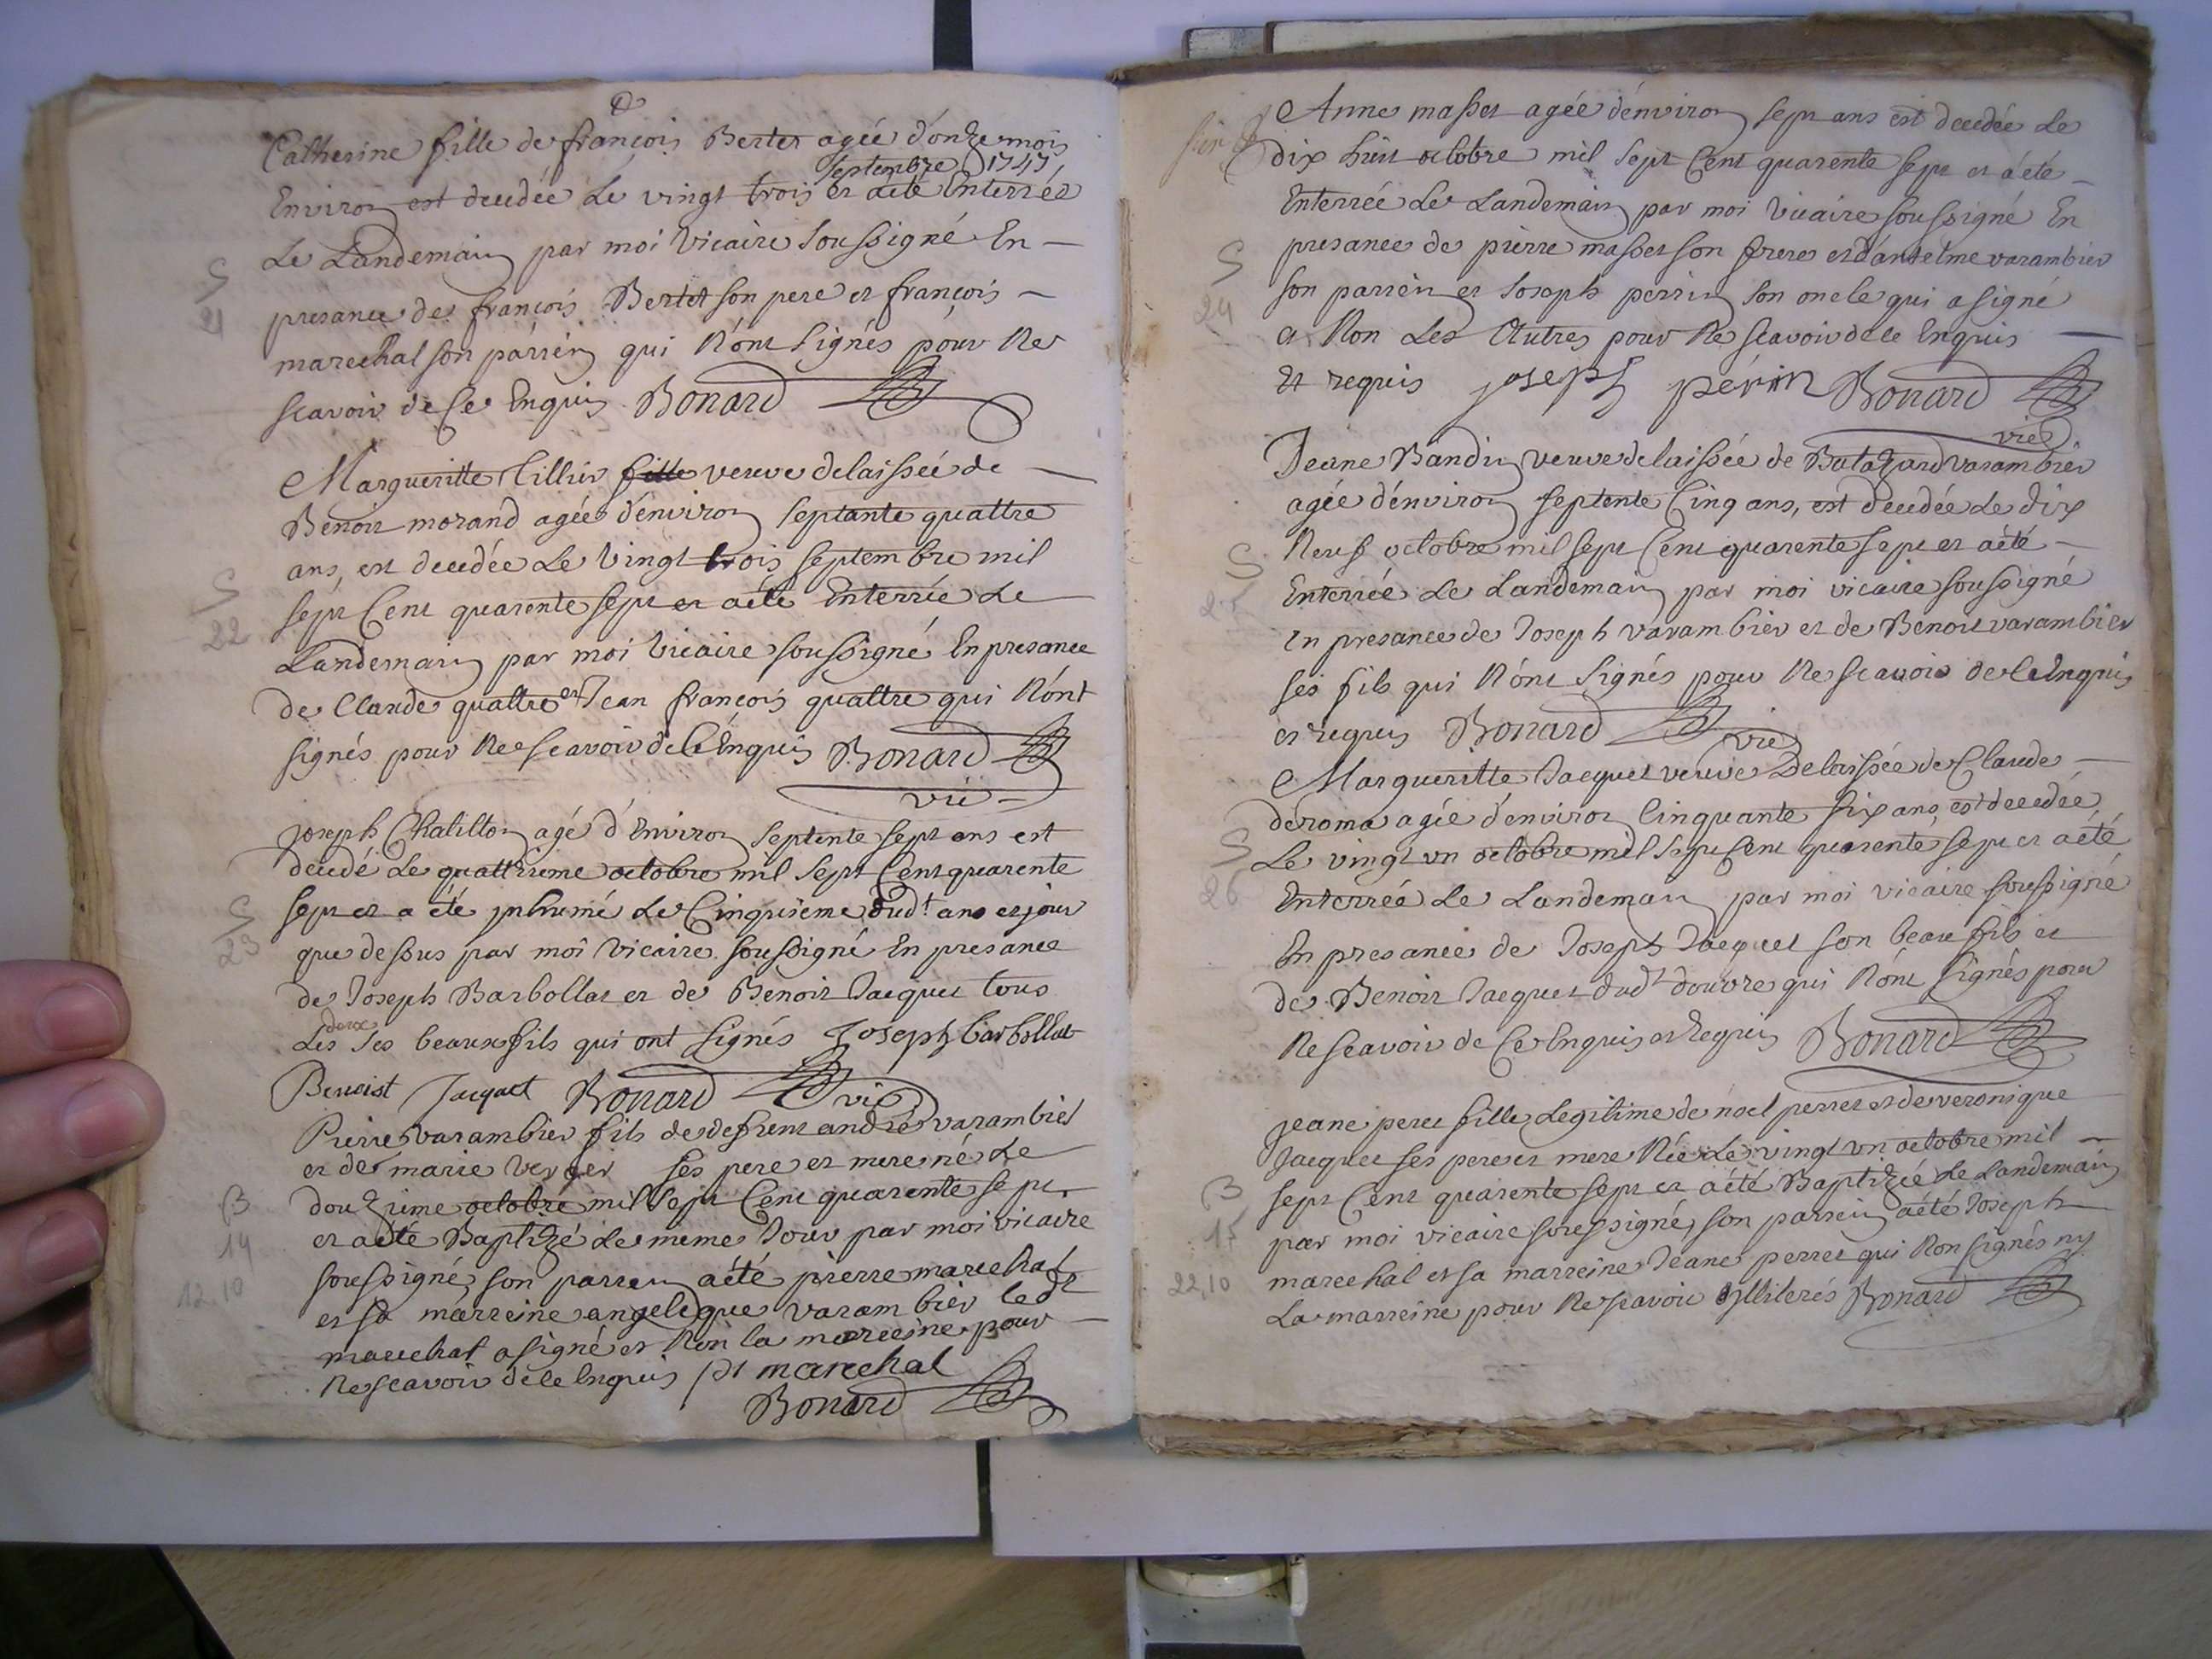 Catherine fille de françois Bertet agée d'onze mois
septembre 1747
Environ est decedée le vingt trois et aété Enterrée
Le Landemain par moi vicaire soussigné En
presance de françois Bertet son pere et françois
marechal son parrein qui N'ont signés pour Ne
scavoir de Ce Enquis Bonard
S
21
Margueritte fille veuve delaissée de
Benoit morand agée d'environ septante quattre
ans, est decedée Le vingt trois septembre mil
sept Cent quarente sept et aété Enterrée Le
Landemain par moi vicaire soussigné En presance
de Claude quattre et Jean françois quattre qui N'ont
signés pour Ne scavoir de Ce Enquis Bonard
vic
S
22
joseph Chatillon agé d'Environ septente sept ans est
decedé Le quattrieme octobre mil sept Cent quarente
sept et a été inhumé Le Cinquieme dudt ans et jour
que dessus par moi vicaire soussigné En presance
de Joseph Barbollat et de Benoit Jacquet tous
deux
Les ses beaux fils qui ont signés Joseph barbollat
Benoist Jacquet Bonard vic
S
23
Pierre varambier fils de defunt andré varambier
et de marie verger ses pere et mere né Le
douzieme octobre mil sept Cent quarente sept
et aété Baptizé Le meme Jour par moi vicaire
soussigné, son parrein aété pierre marechal
et sa marreine angelique varambier ledt
marechal a signé et Non la marreine pour
Ne scavoir de ce Enquis pt marechal
Bonard
B
14
12.10
Anne masset agée d'environ sept ans est decedée Le
dix huit octobre mil sept Cent quarente sept et aété
Enterrée Le Landemain par moi vicaire soussigné En
presance de pierre masset son frere et d'antelme varambier
son parrein et Joseph perrin son oncle qui a signé
et Non Les Autres pour Ne scavoir de ce Enquis
Et requis joseph périn Bonard
vic
S
24
Jeane Bandin veuve delaissée de Batazard varambier
agée d'environ septente Cinq ans, est decedée Le dix
Neuf octobre mil sept Cent quarente sept et aété
Enterrée Le Landemain par moi vicaire soussigné
En presance de Joseph varambier et de Benoit varambier
ses fils qui N'ont signés pour Ne scavoir de Ce Enquis
et requis Bonard
vic
S
25
Margueritte Jacquet veuve Delaissée de Claude
deroma agée d'environ Cinquante six ans, est decedée
Le vingt un octobre mil sept Cent quarente sept et aété
Enterrée Le Landemain par moi vicaire soussigné
En presance de Joseph Jacquet son beau fils et
de Benoit Jacquet dudt douvre qui N'ont signés pour
Ne scavoir de Ce Enquis et Requis Bonard
S
26
jeane peret fille Legitime de noel perret et de veronique
Jacquet ses pere et mere Née Le vingt un octobre mil
sept Cent quarente sept et aété Baptizée Le Landemain
par moi vicaire soussigné, son parrein aété Joseph
marechal et sa marreine Jeane perret qui Non signés ny
La marreine pour Ne scavoir Illiterés Bonard
B
15
22.10